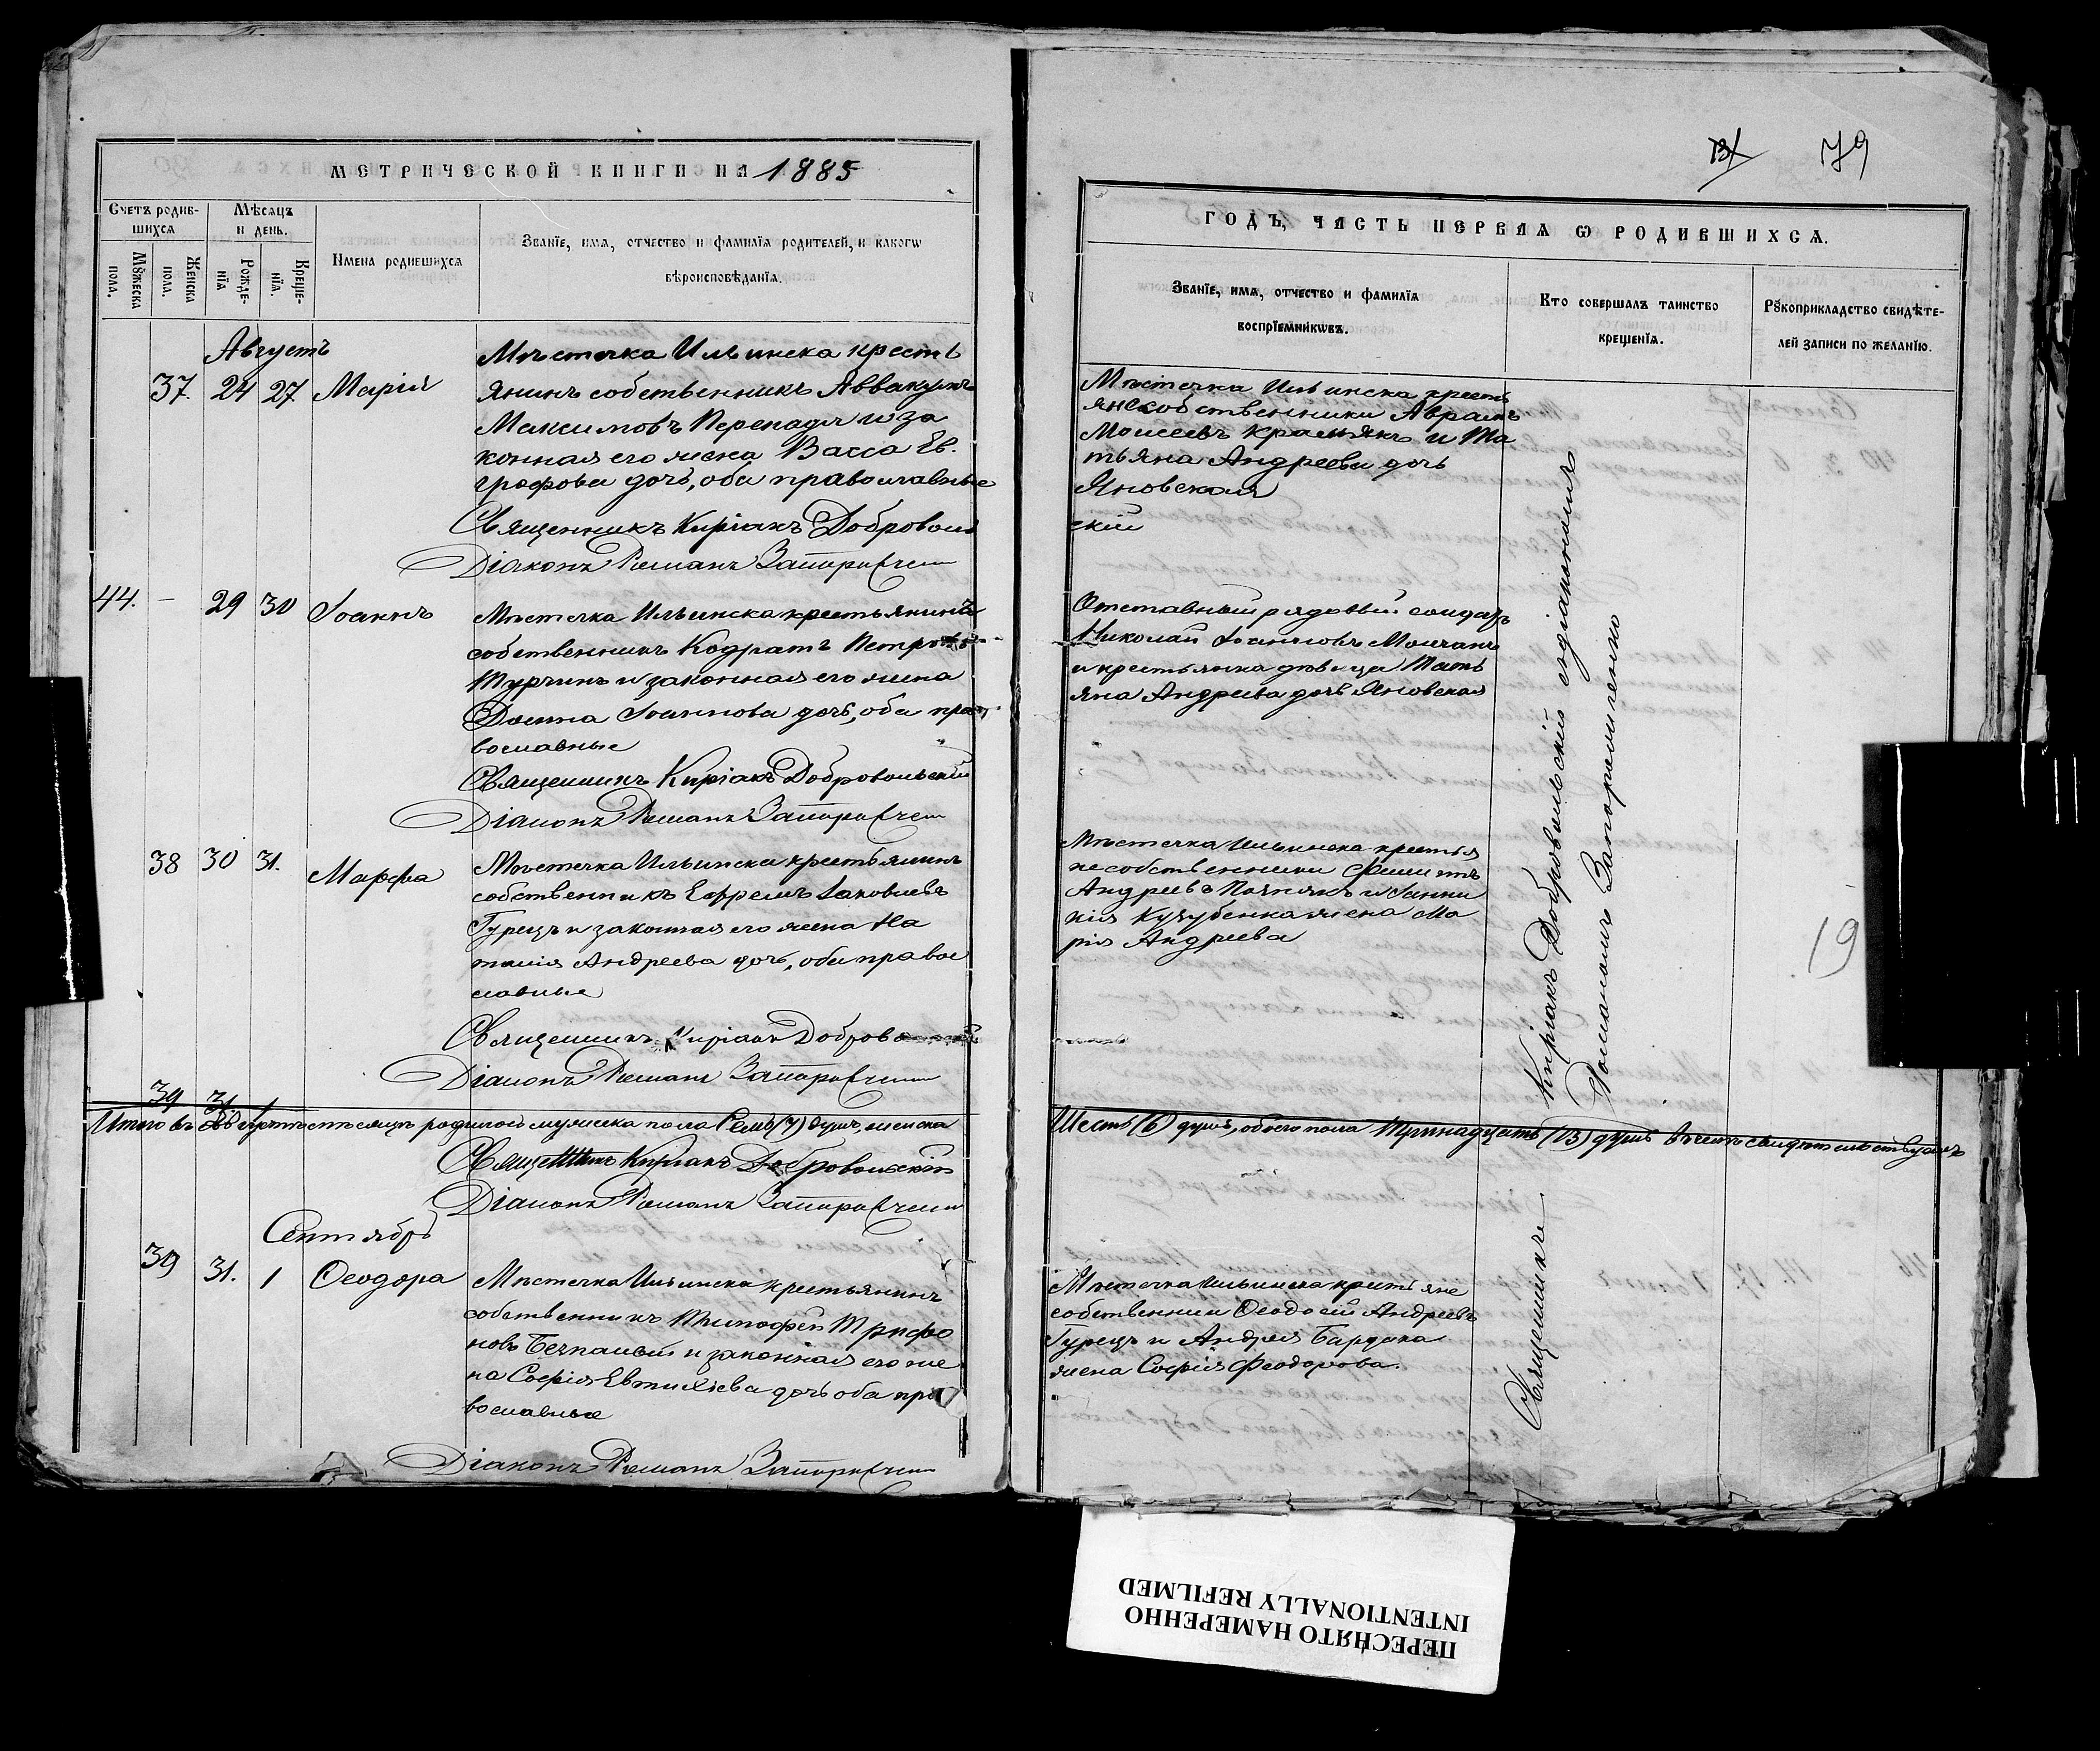 МЕТРИЧЕСКОЙ КНИГИ НА 1885
Счетъ родив-
шихся
Мѣсяцъ
и день.
Имена родившихся
Званїе, имя, отчество и фамилїя родителей, и какогѡ
вѣроисповѣданїя.
Мꙋжеска
пола.
Женска
пола.
Рожде-
нїя
Креще-
нїя.
Августъ
37. 24 27. Марія
Мѣстечка Ильинска кресть
янинъ собственникъ Аввакумъ
Максимовъ Перепадя и за
конная его жена Васса Ев.
графова дочь, оба православные
Священникъ Киріакъ Доброволь
Діаконъ Романъ
44. – 29 30 Іоаннъ
Мѣстечка Ильинска крестьянинъ
собственникъ Кодратъ Петровъ
Турчинъ и законная его жена
Домна Іоаннова дочь, оба пра
вославные
Священникъ Киріакъ Добровольскій
Діаконъ Романъ
38 30 31. Марфа
Мѣстечка Ильинска крестьянинъ
собственникъ Ефремъ Іаковлевъ
Гурецъ и законная его жена На
талія Андреева дочь, оба правос
лавные
Священникъ Киріакъ
Діаконъ Романъ
39 31. 1
Итого въ Августѣ мѣсяцѣ родилось мужеска пола Семь (7) душъ, женска
Священникъ Киріакъ Добровольскій
Діаконъ Романъ
Сентябрь
39 31. 1 Ѳеодора
Мѣстечка Ильинска крестьянинъ
собственникъ Тимофей Трифо
новъ и законная его же
на Софія Евтихіева дочь оба пра
вославные
Діаконъ Романъ
79
ГОДЪ, ЧАСТЬ ПЕРВАЯ Ѡ РОДИВШИХСЯ.
Званїе, имя, отчество и фамилїя
воспрїемникѡвъ.
Кто совершалъ таинство
крещенїя.
Рꙋкоприкладство свидѣте-
лей записи по желанїю.
Мѣстечка Ильинска кресть
яне собственники Авраамъ
Моисеевъ и Та
тьяна Андреева дочь
Яновская
скій
Отставный рядовый солдатъ
Николай Іоанновъ Молчанъ
и крестьянка дѣвица Тать
яна Андреева дочь Яновская
Мѣстечка Ильинска крестья
не собственники Филиппъ
Андреевъ
жена Ма
рія Андреева
Шесть (6) душъ, обоего пола Тринадцать (13) душъ въ чемъ свидѣтельствуемъ
Мѣстечка Ильинска крестьяне
собственники Ѳеодосій Андреевъ
Гурецъ и Андрея
жена Софія Феодорова.
Священникъ Киріакъ Добровольскій съ діакономъ
Романомъ
19
ПЕРЕСНЯТО НАМЕРЕННО
INTENTIONALLY REFILMED